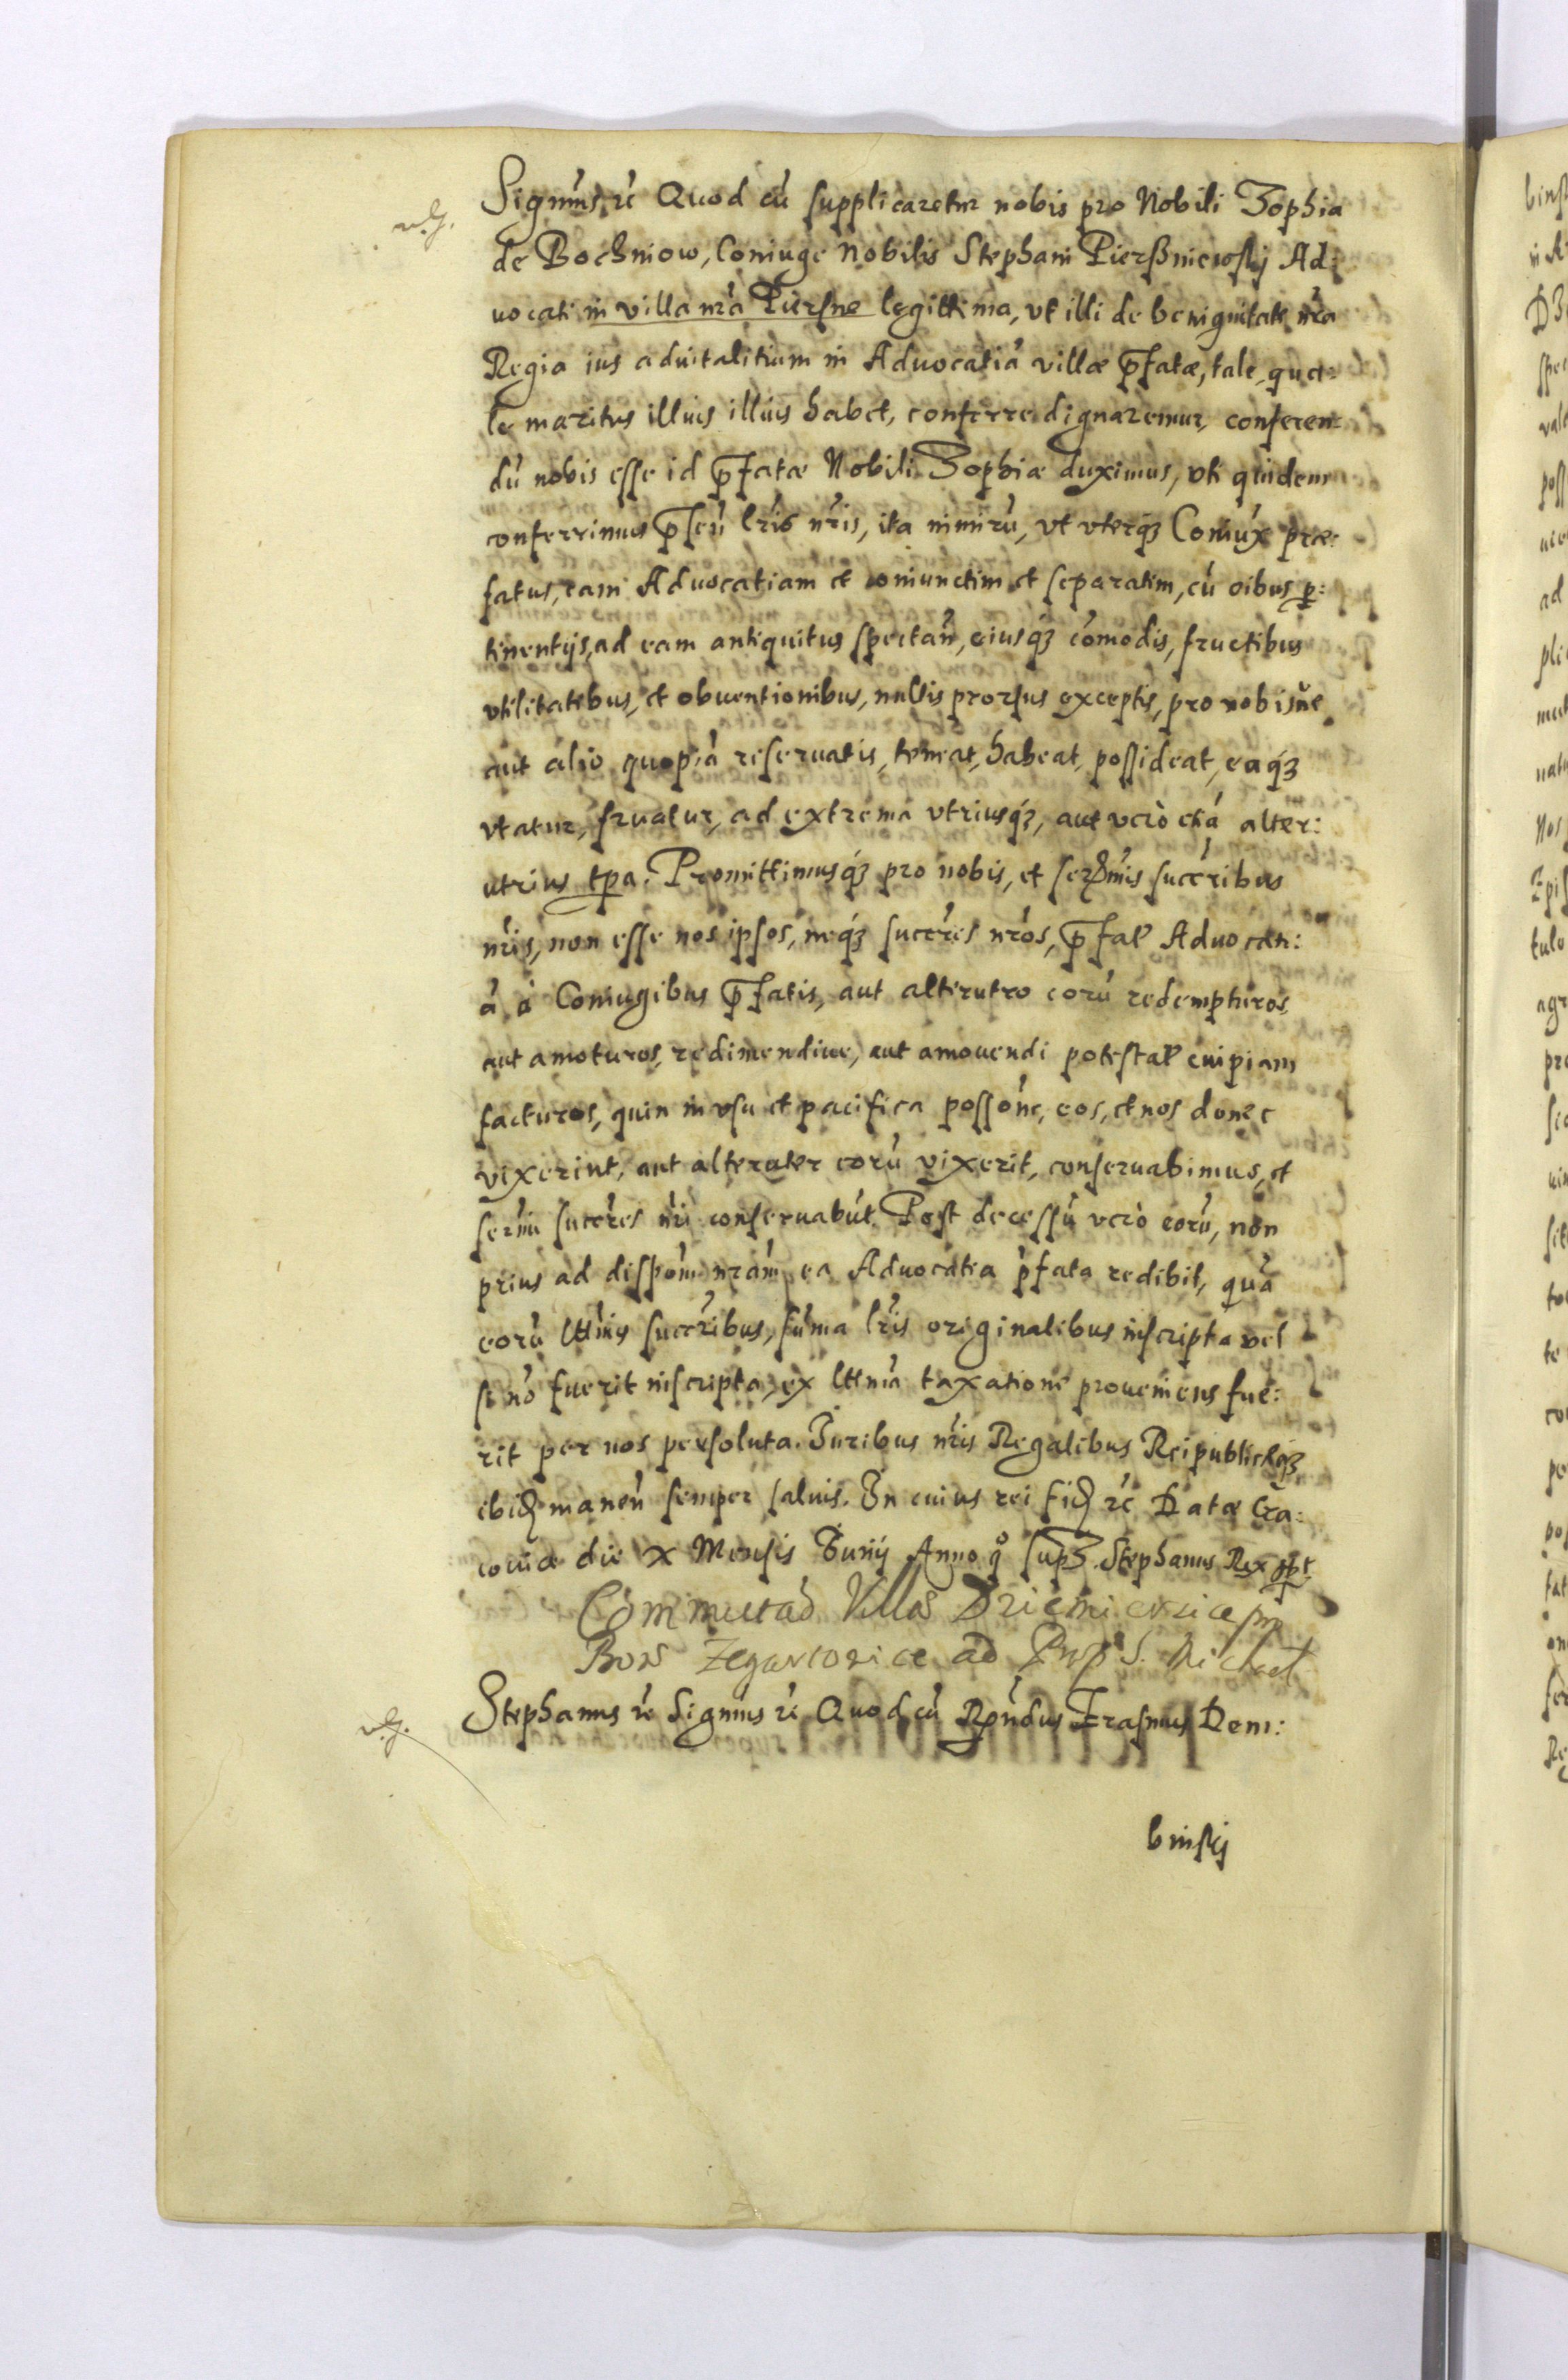 Signim̃s rc̃ Quod cũ supplicaretur nobis pro Nobili Zophia
de Bochniow, Coniuge Nobilis Stephani Pierßniewskij Ad:
uocati in villa nrã Piersne legittima, vt illi de benignitate nrã
Regia ius aduitalitium in Aduocatiã villæ p̃fatæ, tale, qua:
le maritus illius illius habet, conferre dignaremur, conferen:
dũ nobis esse id p̃fatæ Nobili Zophiæ duximus, vti quidem
conferrimus p̃señ lris nris, ita nimirũ, vt vterq3 Coniux præ:
fatus, eam Aduocatiam et coniunctim et separatim, cũ oibus p:
tinentijs, ad eam antiquitus spectañ, eiusq3 cõmodis, fructibus
vtilitatibus, et obuentionibus, nullis prorsus exceptis, pro nobisue
aut alio quopiã reseruatis, teneat, habeat, possideat, eaq3
vtatur, fruatur, ad extrema vtriusq3, aut verò etiã alter:
utrius tpa. Promittimusq3 pro nobis, et serm̃is succribus
nris, non esse nos ipsos, neq3 succres nros, p̃fat Aduocati:
ã à Coniugibus p̃fatis, aut alterutro eorũ redempturos
aut amoturos, redimendiue, aut amouendi potestat cuipiam
facturos, quin in vsu et pacifica possone, eos, et nos donec
vixerint, aut alteruter eorũ vixerit, conseruabimus, et
sermi succres nri conseruabũt. Post decessũ verò eorũ, non
prius ad disponem nram ea Aduocatia p̃fata redibit, quã
eorũ lttimis succribus, sũma lris originalibus inscripta vel
si nõ fuerit inscripta, ex lttima taxatione proueniens fue:
rit per nos persoluta. Iuribus nris Regalibus Reipublicæq3
ibid manen semper saluis. In cuius rei fid rc̃ Datæ Cra:
couiæ die X Mensis Iunij Anno q° sup3. Stephanus Rex sspt
Villas
Bon Zegartowice ad Prep S. Michael
Stephanus rc̃ Signim̃s rc̃ Quod cũ Rndus Erasmus Dem:
binskj